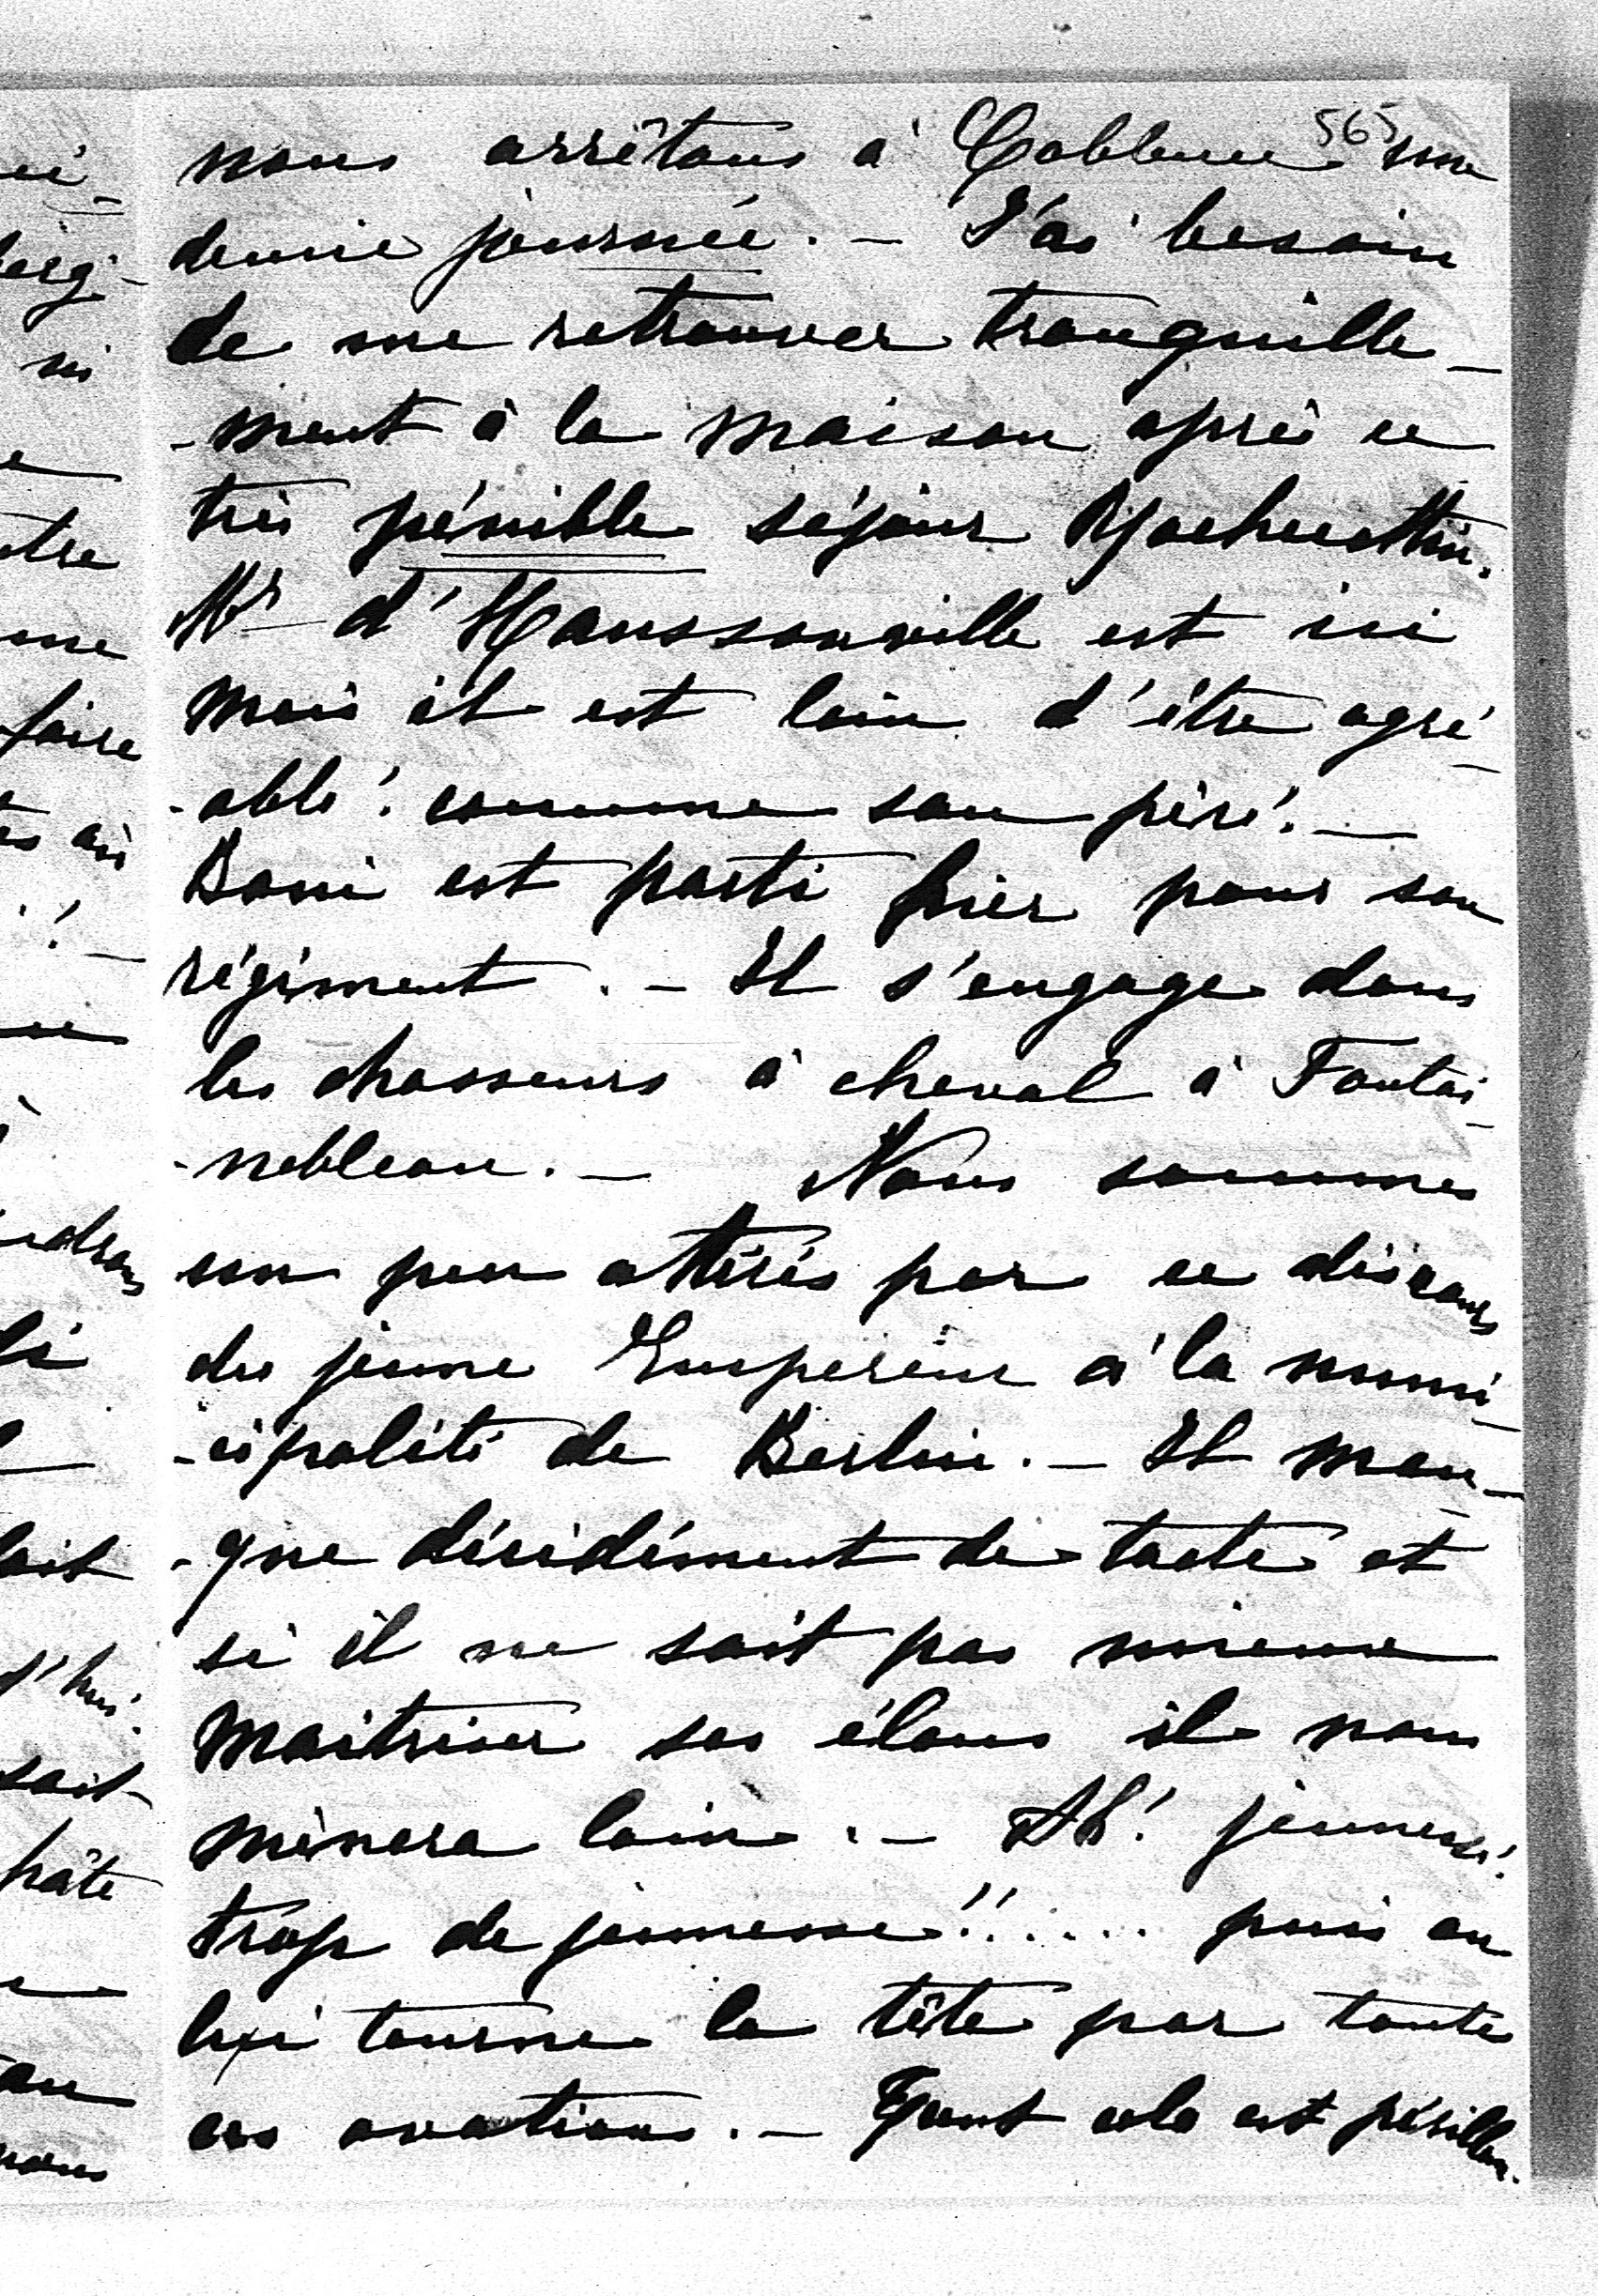 565
nous arrêtons à Coblence une
demie journée. — J'ai besoin
de me retrouver tranquille-
-ment à la maison après ce
très pénible séjour
Mr d'Haussonville est ici
mais il est loin d'être agré-
-able! comme son père! —
Boni est parti hier pour son
régiment. — Il s'engage dans
les chasseurs à cheval à Fontai-
-nebleau. — Nous sommes
un peu attérés par ce discours
du jeune Empereur à la muni-
-cipalité de Berlin. — Il man-
-que décidément de tacte et
si il ne sait pas mieux
maitriser ses élans il nous
mènera loin. — Ah! jeunesse!
trop de jeunesse!!..... puis on
lui tourne la tête par toute
ces ovations. — Tout cela est périlleux.